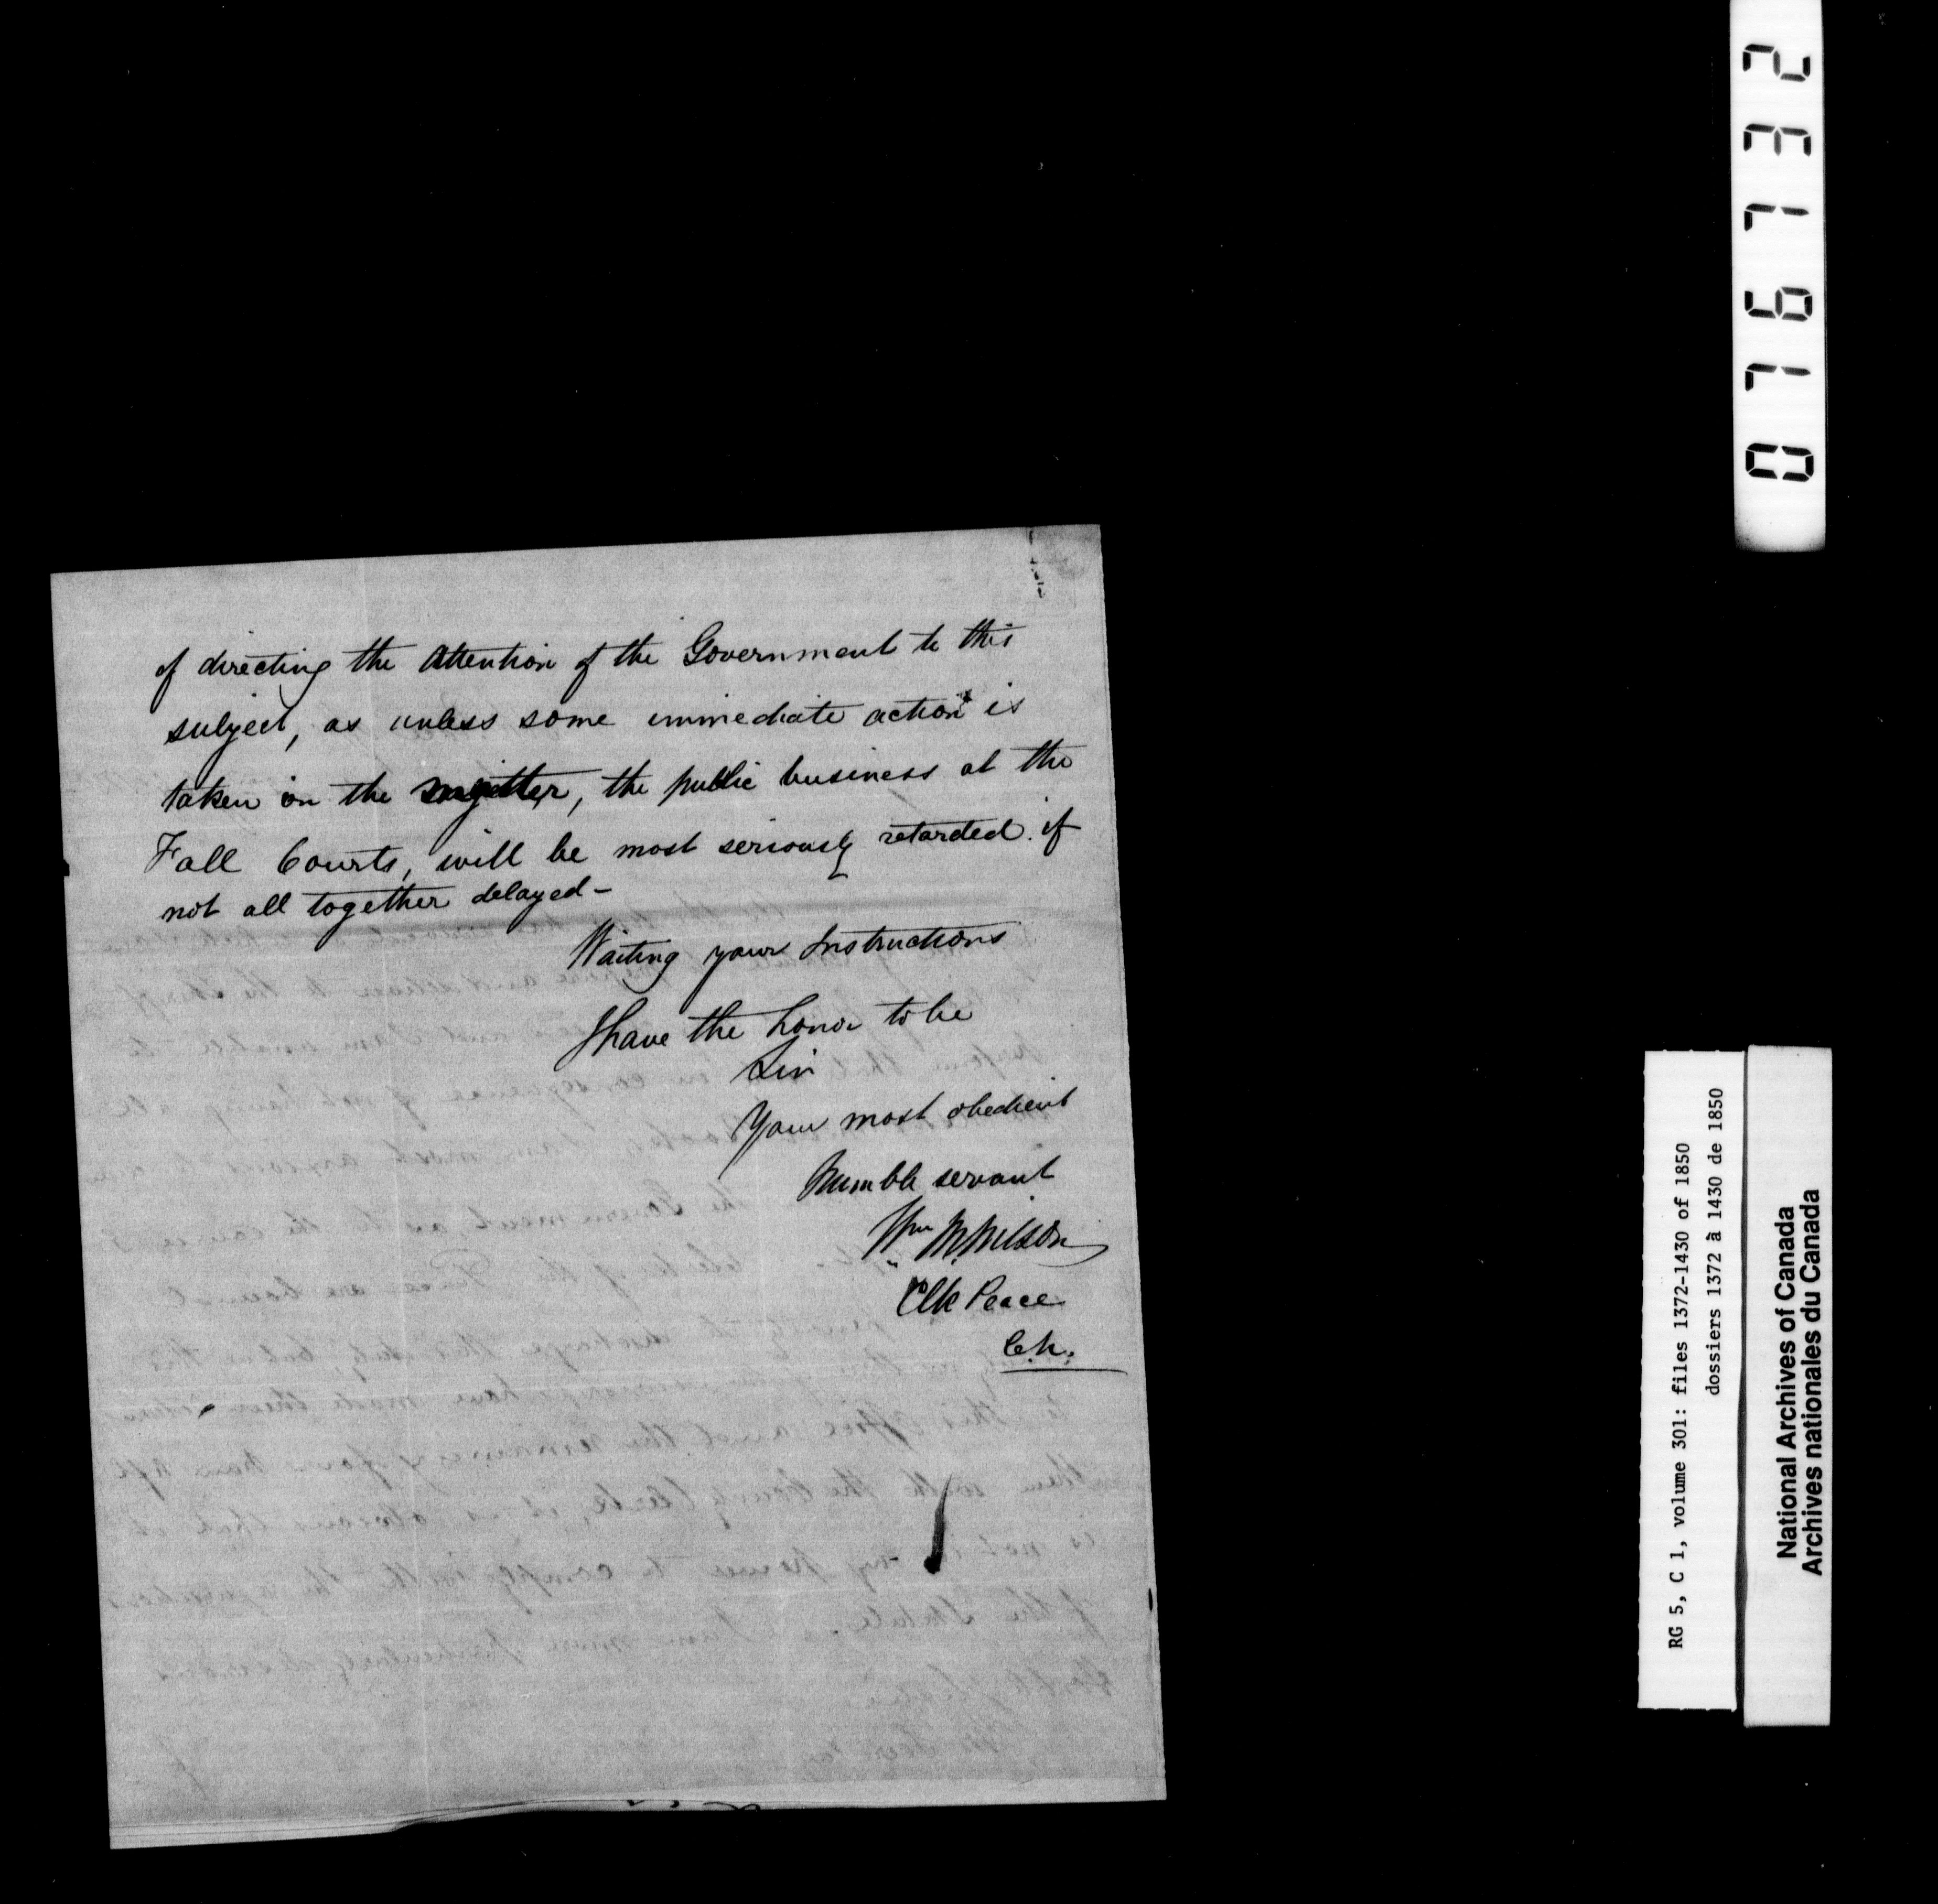 of directing the Attention of the Government to this
subject, as unless some immediate action is
taken on the matter, the public business at the
Fall Courts, will be most seriously retarded if
not all together delayed –
Waiting your Instructions
I have the honor to be
Sir
Your most obedient
Humble servant
Wm M. Wilson
Clk Peace
076732
RG 5, C 1, volume 301: files 1372-1430 of 1850
dossiers 1372 à 1430 de 1850
National Archives of Canada
Archives nationales du Canada